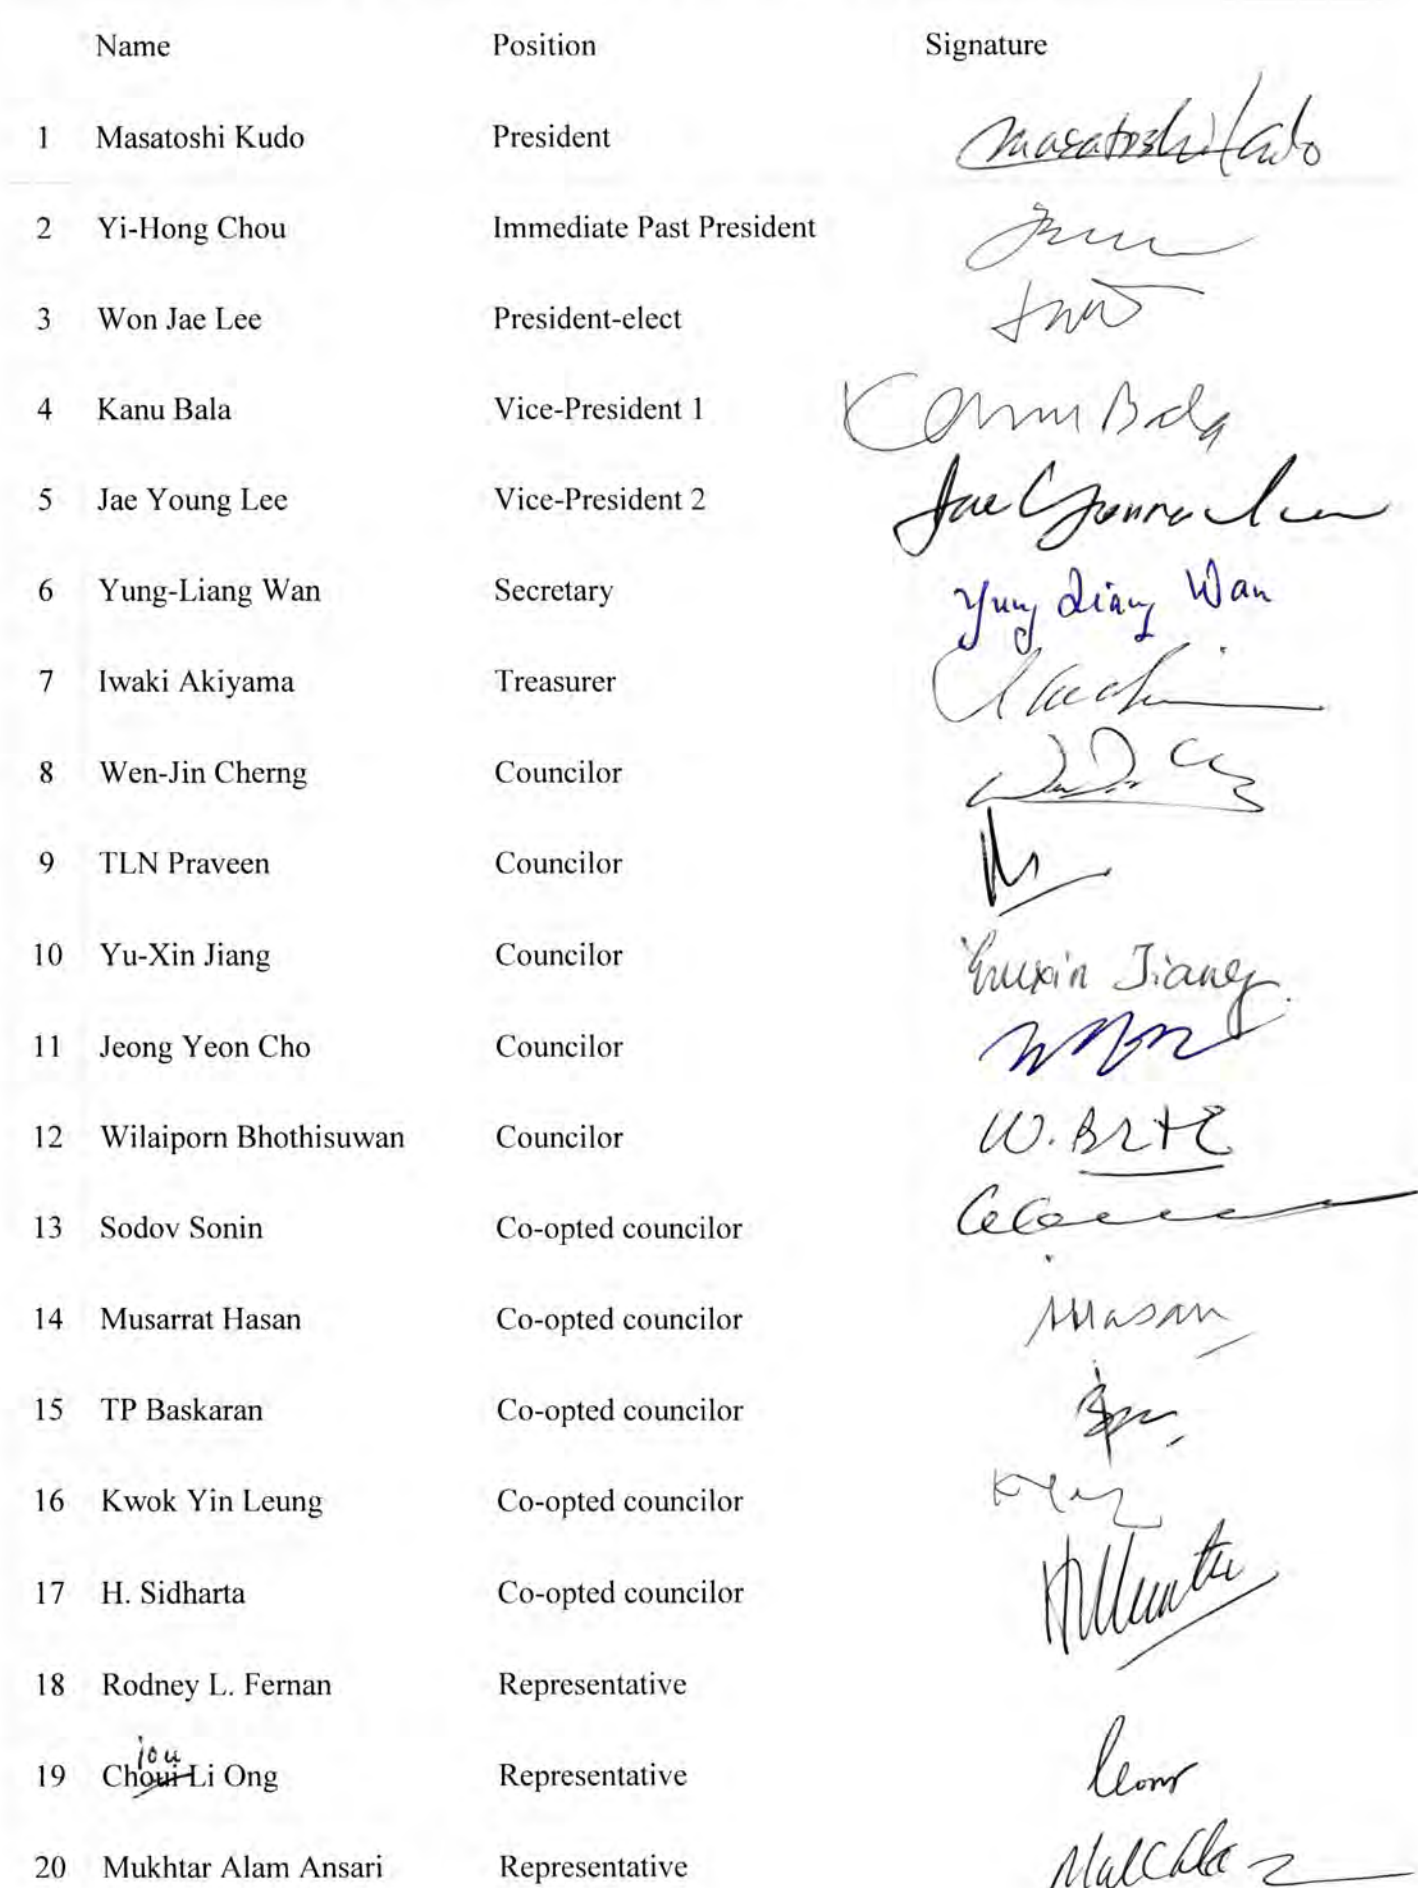 Name Position Signature
1 Masatoshi Kudo President Masatoshi Kudo
2 Yi-Hong Chou Immediate Past President
3 Won Jae Lee President-elect
4 Kanu Bala Vice-President 1 Kanu Bala
5 Jae Young Lee Vice-President 2 Jae Young Lee
6 Yung-Liang Wan Secretary Yung Liang Wan
7 Iwaki Akiyama Treasurer
8 Wen-Jin Cherng Councilor
9 TLN Praveen Councilor
10 Yu-Xin Jiang Councilor Yuxin Jiang
11 Jeong Yeon Cho Councilor
12 Wilaiporn Bhothisuwan Councilor W.
13 Sodov Sonin Co-opted councilor
14 Musarrat Hasan Co-opted councilor
15 TP Baskaran Co-opted councilor
16 Kwok Yin Leung Co-opted councilor
17 H. Sidharta Co-opted councilor
18 Rodney L. Fernan Representative
iou
19 Choui Li Ong Representative
20 Mukhtar Alam Ansari Representative